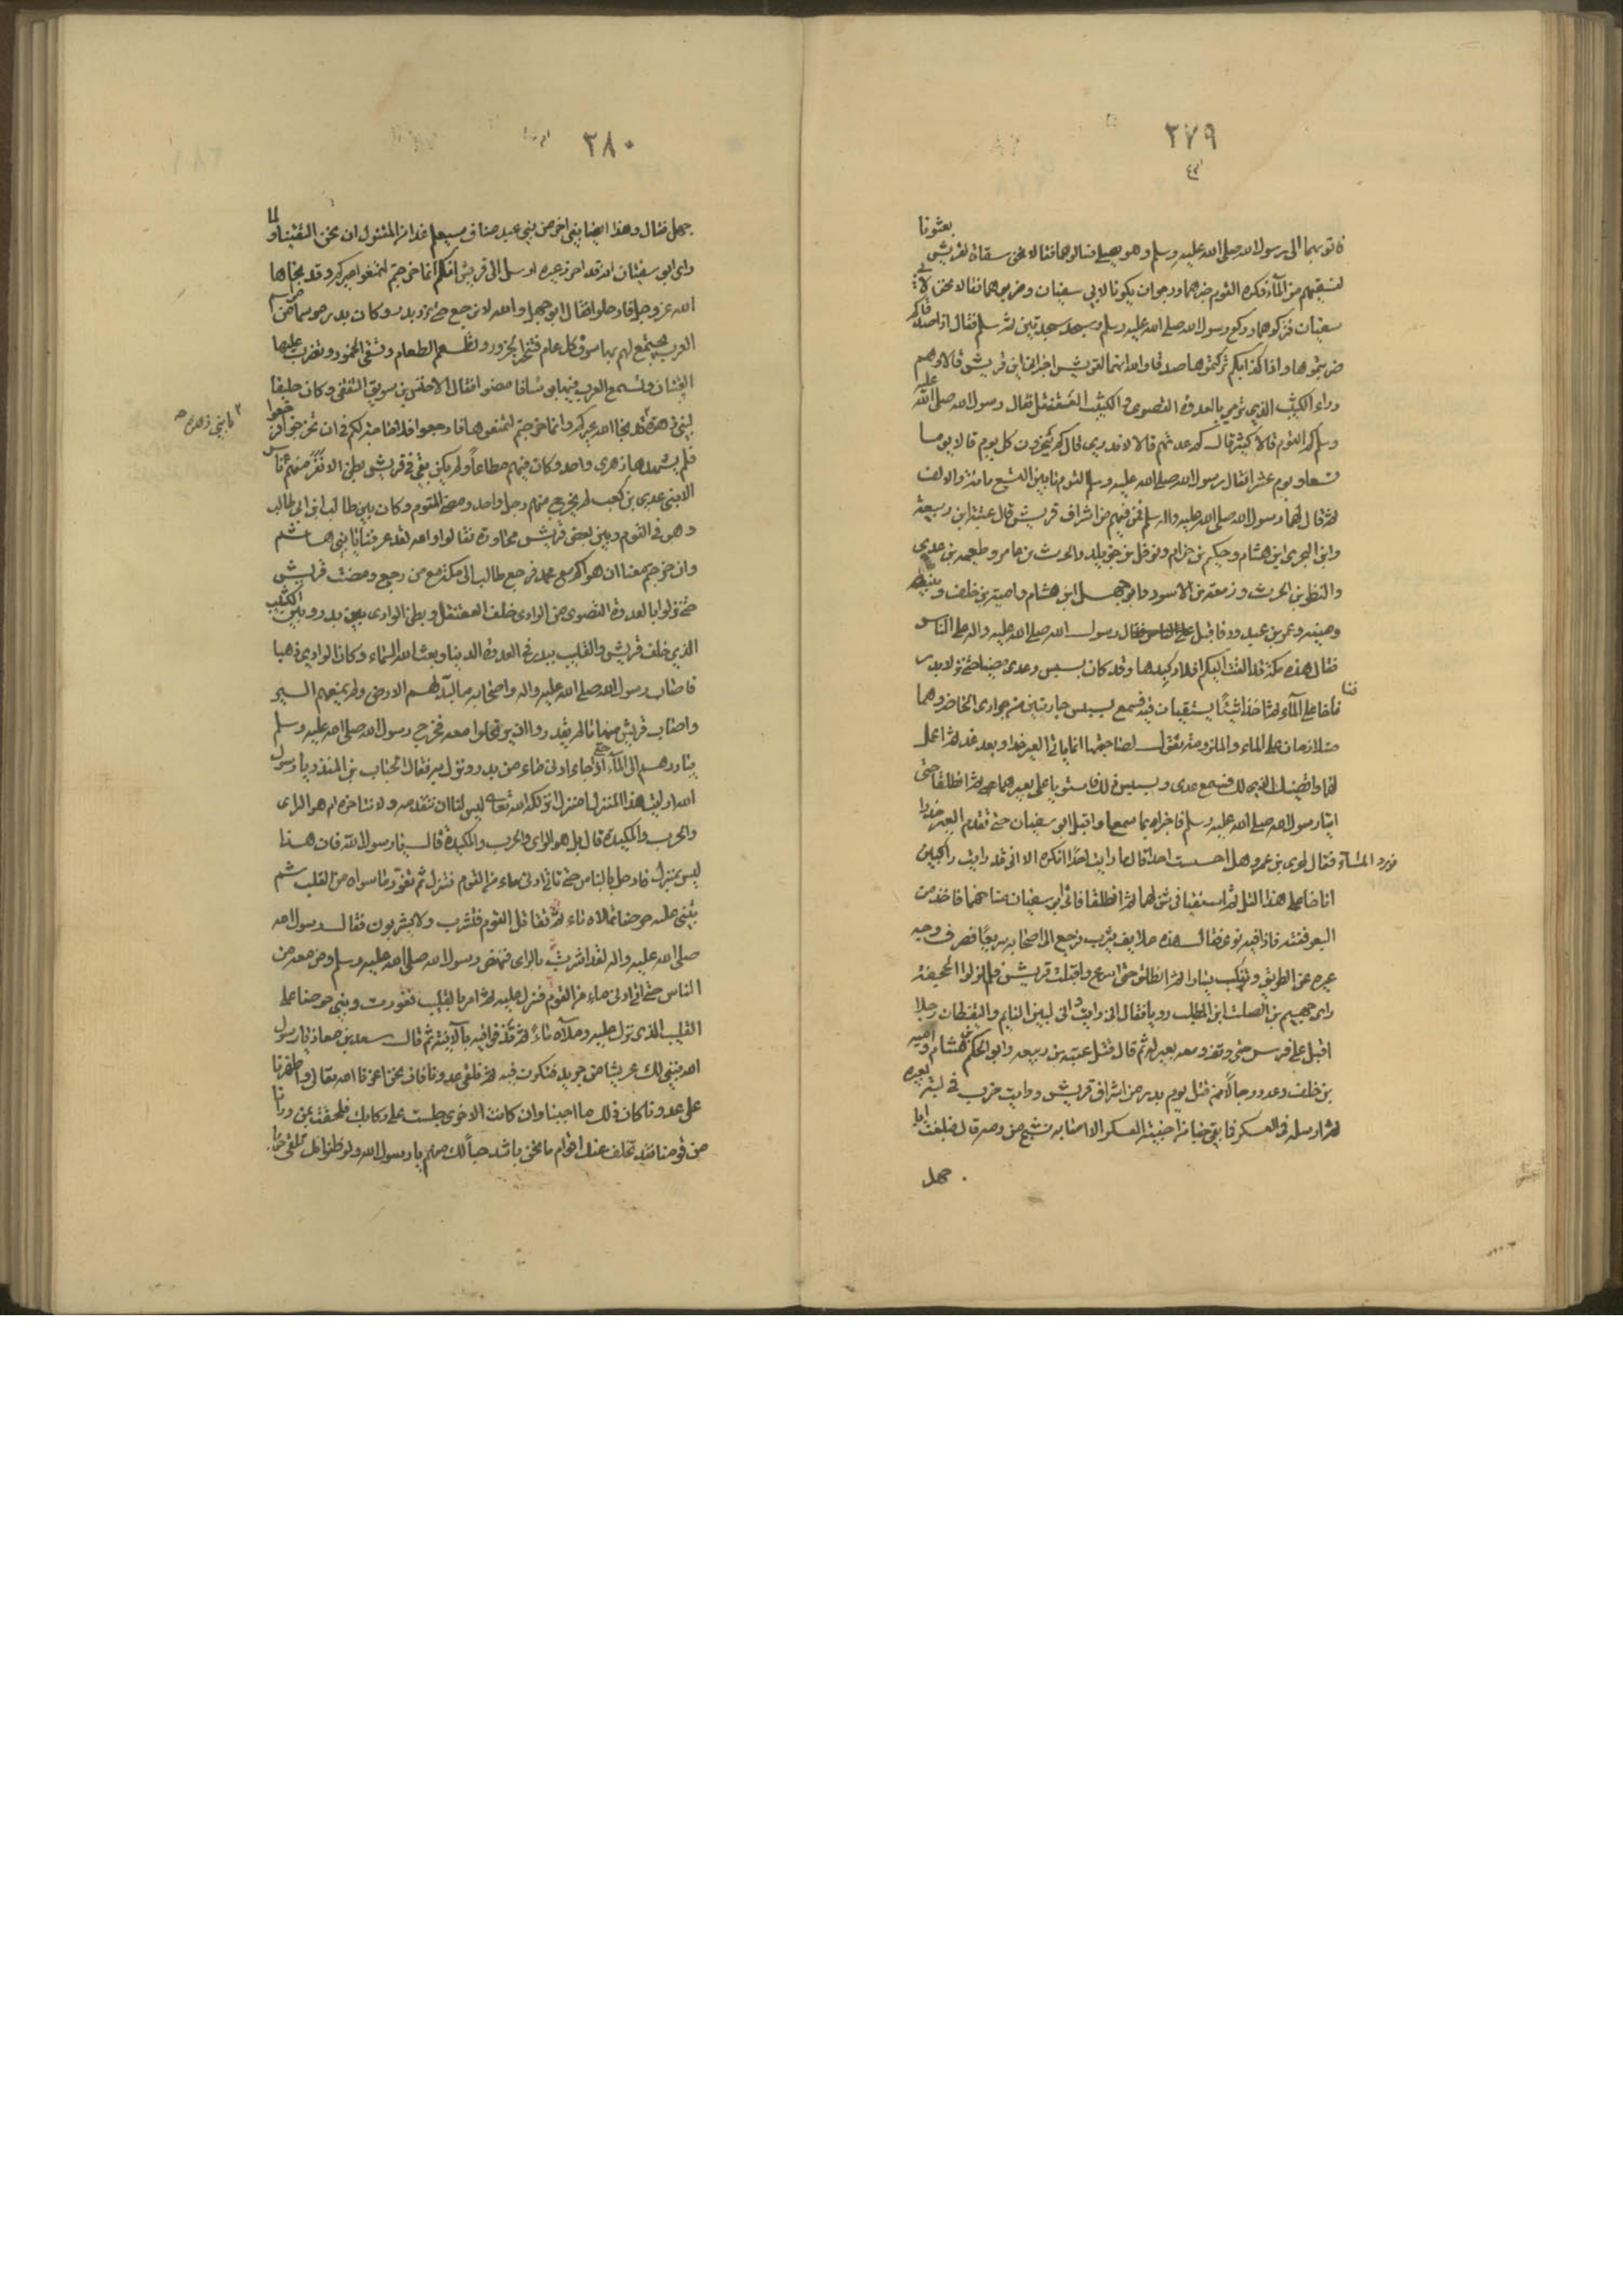 ٢٧٩
فاتوبهما الى رسول الله صلى الله عليه وسلم وهو يصلي فسالوهما فقالا نحن سقاة لقريش بعثونا
لنسقيهم من المآء فكره القوم خبرهما ورجوا ان يكونا لابي سفيان وضربوهما فقالا نحن لابي
سفيان فتركوهما وركع رسول الله صلى الله عليه وسلم وسجد سجدتين ثم سلم فقال اذا صدقاكم
ضربتموهما واذا كذباكم تركتموهما صدقا والله انهما لقريش اخبراني اين قريش قالا هم
وراء الكثيب الذي ترى بالعدوة القصوى والكثيب العقنقل فقال رسول الله صلى الله عليه
وسلم كم القوم قالا كثير قال كم عدتهم قالا لا ندري قال كم ينحرون كل يوم قالا يوما
تسعا ويوم عشرا فقال رسول الله صلى الله عليه وسلم القوم ما بين التسع مائة والالف
ثم قال لهما رسول الله صلى الله عليه واله وسلم فمن فيهم من اشراف قريش قال عتبة ابن ربيعة
وابي البحري ابن هشام وحكيم بن حزام ونوفل بن خويلد والحرث بن عامر وطعيمه بن عدي
والنظر بن الحرث وزمعة بن الاسود وابو جهل ابن هشام وامية بن خلف ونبيه
ومنبه وعمر بن عبد ود فاقبل رسول الله صلى الله عليه واله على الناس
فقال هذه مكة قد القت اليكم افلاذ كبدها وقد كان بسيس وعدي مضيا حتى نزلا بدر
فاناخا على المآء ثم اخذا شنًا يستقيان فيه فسمع بسيس جاريتين من جواري الحاضر وهما
متلازمان على الماء والملزومة تقول لصاحبتها انما ياتي العير غدا وبعد غد ثم اعمل
لهم واقضيك الذي لك فسمع عدي وبسيس ذلك فاستويا على بعيرهما ثم انطلقا حتى
اتيا رسول الله صلى الله عليه وسلم فاخبراه بما سمعا واقبل ابي سفيان حتى تقدم العير حذرا
فورد المآء فقال لمجدي بن عمرو هل احسست احد قال ما رايت احدًا انكره الا اني قد رايت راكبين
اناخا على هذا التل ثم استقيا في شن لهما ثم انطلقا فاتى ابو سفيان مناخهما فاخذ من
البعر ففته فاذا فيه نوى فقال هذه علايف يثرب فرجع الى اصحابه سريعًا فصرف وجه
عيره عن الطريق ونكب بيسارا ثم انطلق حتى اسرع واقبلت قريش فلما نزلوا الجحيفة
راى جهيم بن الصلت ابن المطلب رويا فقال اني رايت واني لبين النايم واليقظان رجلا
اقبل على فرس حتى وقف ومعه بعير له ثم قال قتل عتبة بن ربيعه وابو الحكم بن هشام وامية
بن خلف وعدد رجالًا ممن قتل يوم بدر من اشراف قريش ورايت ضرب في لبة بعيره
ثم ارسله في العسكر فما بقي خبا من اخبية العسكر الا اصابه نضح من دمه قال فبلغت ابا
جهل
٢٨٠
جهل فقال وهذا ايضا نبي اخر من بني عبد مناف سيعلم غدا من المقتول ان نحن التقينا ولما
راى ابي سفيان انه قد احرز عيره ارسل الى قريش انكم انما خرجتم لتمنعوا عيركم وقد نجاها
الله عز وجل فارجعوا فقال ابو جهل والله لا نرجع حتى نرد بدر وكان بدر موسما من مواسم
العرب يجتمع لهم بها سوق كل عام فننحر الجزور ونطعم الطعام ونسقي الخمور وتضرب علينا
القينان وتسمع العرب فيهابونا فامضوا فقال الاخنس بن سريق الثقفي وكان حليفا
لبني زهرة قد نجا الله عيركم وانما خرجتم لتمنعوها فارجعوا فلا حاجة لكم في ان تخرجوا فرجعوا
يا بني زهرة صح
فلم يشهدها زهري واحد وكان فيهم مطاعاً ولم يكن بقي في قريش بطن الا نفر منهم ناس
الا بني عدي بن كعب لم يخرج منهم رجل واحد ومضى القوم وكان بين طالب ابن ابي طالب
وهو في القوم وبين بعض قريش محاورة فقالوا والله لقد عرفنا يا بني هاشم
وان خرجتم معنا ان هواكم مع محمد فرجع طالب الى مكة مع من رجع ومضت قريش
حتى نزلوا بالعدوة القصوى من الوادي خلف العقنقل وبطن الوادي بين بدر وبين الكثيب
الذي خلف قريش والقليب ببدر في العدوة الدنيا وبعث الله السماء وكان الوادي دهسا
فاصاب رسول الله صلى الله عليه واله واصحابه ما لبد لهم الارض ولم يمنعهم السير
واصاب قريش منها ما لم يقدروا ان يرتحلوا معه فخرج رسول الله صلى الله عليه وسلم
يبادرهم الى المآء حتى اذا جاء ادنى ماء من بدر ونزل به فقال الحباب بن المنذر يا رسول
الله ارايت هذا المنزل امنزل انزلكه الله تعالى ليس لنا ان نتقدمه ولا نتاخره ام هو الراي
والحرب والمكيدة قال بل هو الراي والحرب والمكيدة قال يا رسول الله فان هذا
ليس بمنزل فارحل بالناس حتى ناتي ادنى ماء من القوم فننزل ثم نغور ما سواه من القلب ثم
نبني عليه حوضا نملاه ماء ثم نقاتل القوم فنشرب ولا يشربون فقال رسول الله
صلى الله عليه واله لقد اشرت بالراي فنهض رسول الله صلى الله عليه وسلم ومن معه من
الناس حتى اتى ادنى ماء من القوم فنزل عليه ثم امر بالقليب فغورت وبنى حوضا على
القليب الذي نزل عليه وملآه ماءً ثم قذف فيه بالآنية ثم قال سعد بن معاذ يا رسول
الله نبني لك عريشا من جريد فتكون فيه ثم نلقى عدونا فان نحن اعزنا الله تعالى واظهرنا
على عدونا كان ذلك ما احببنا وان كانت الاخرى جلست على ركابك فلحقت بمن ورانا
من قومنا فقد تخلف عنك اقوام ما نحن باشد حباً لك منهم يا رسول الله ولو ظنوا انك تلقى حربا